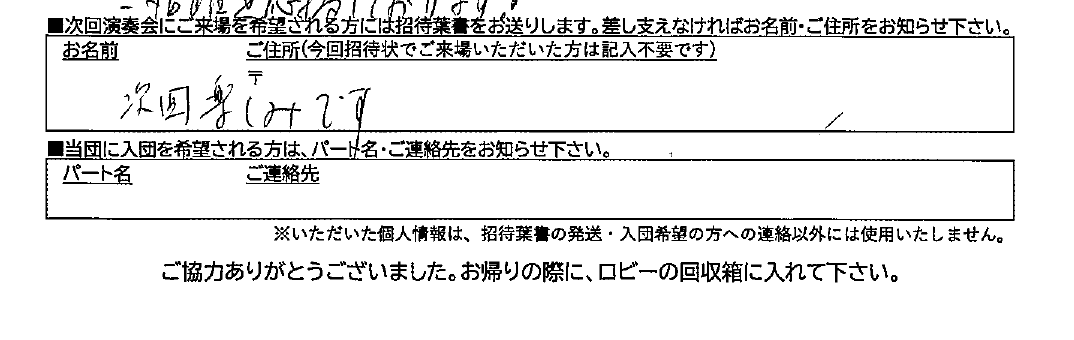 ■次回演奏会にご来場を希望される方には招待葉書をお送りします。差し支えなければお名前・ご住所をお知らせ下さい。
お名前 ご住所(今回招待状でご来場いただいた方は記入不要です)
〒
次回楽しみです
■当団に入団を希望される方は、パート名・ご連絡先をお知らせ下さい。
パート名 ご連絡先
※いただいた個人情報は、招待葉書の発送・入団希望の方への連絡以外には使用いたしません。
ご協力ありがとうございました。お帰りの際に、ロビーの回収箱に入れて下さい。